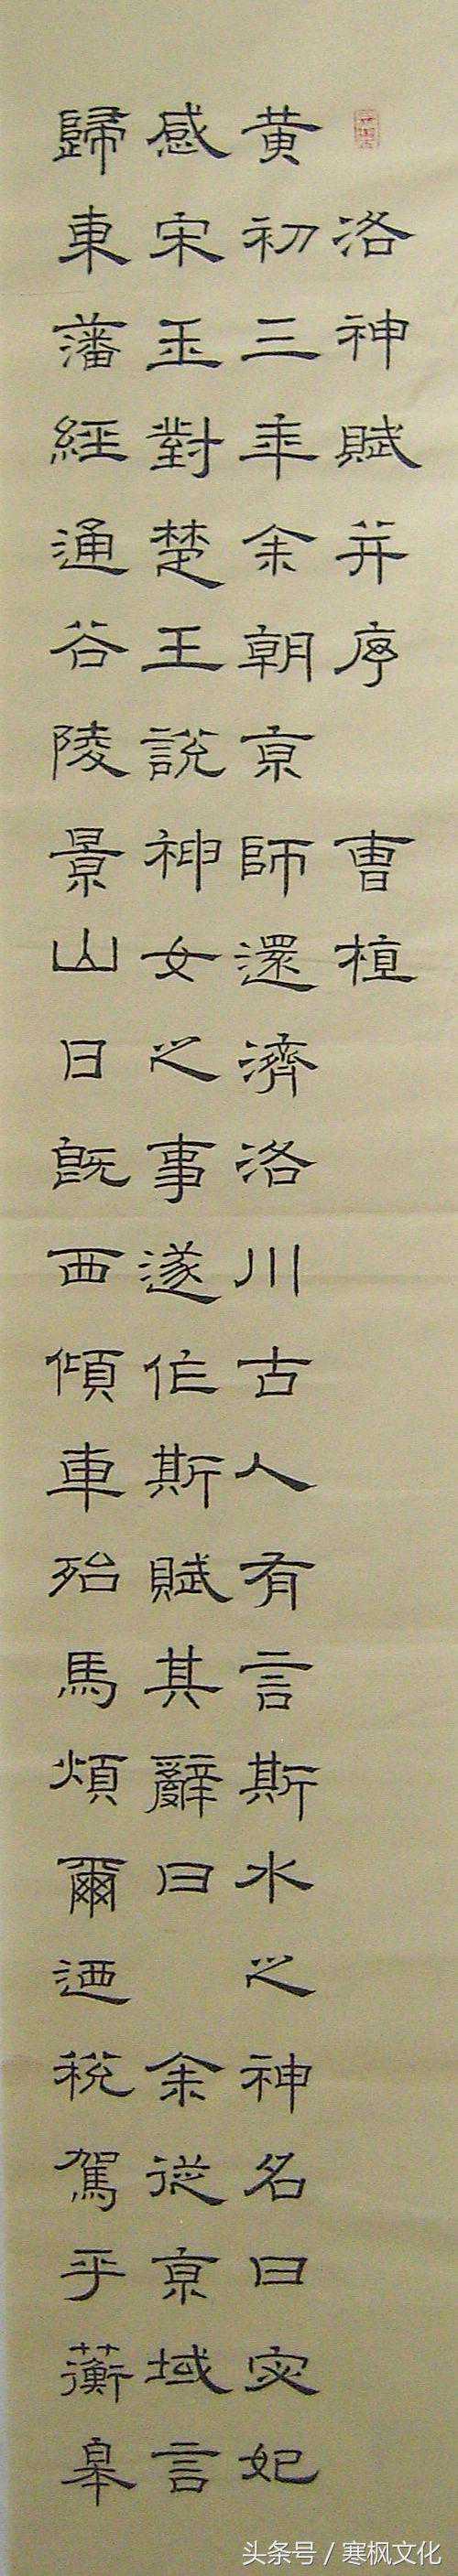 洛神賦并序 曹植
黄初三年余朝京師還濟洛川古人有言斯水之神名曰宓妃
感宋玉對楚王說神女之事遂作斯賦其辭曰 余從京域言
歸東藩經通谷陵景山日既西傾車殆馬煩爾迺稅駕乎蘅皋
头条号 / 寒枫文化